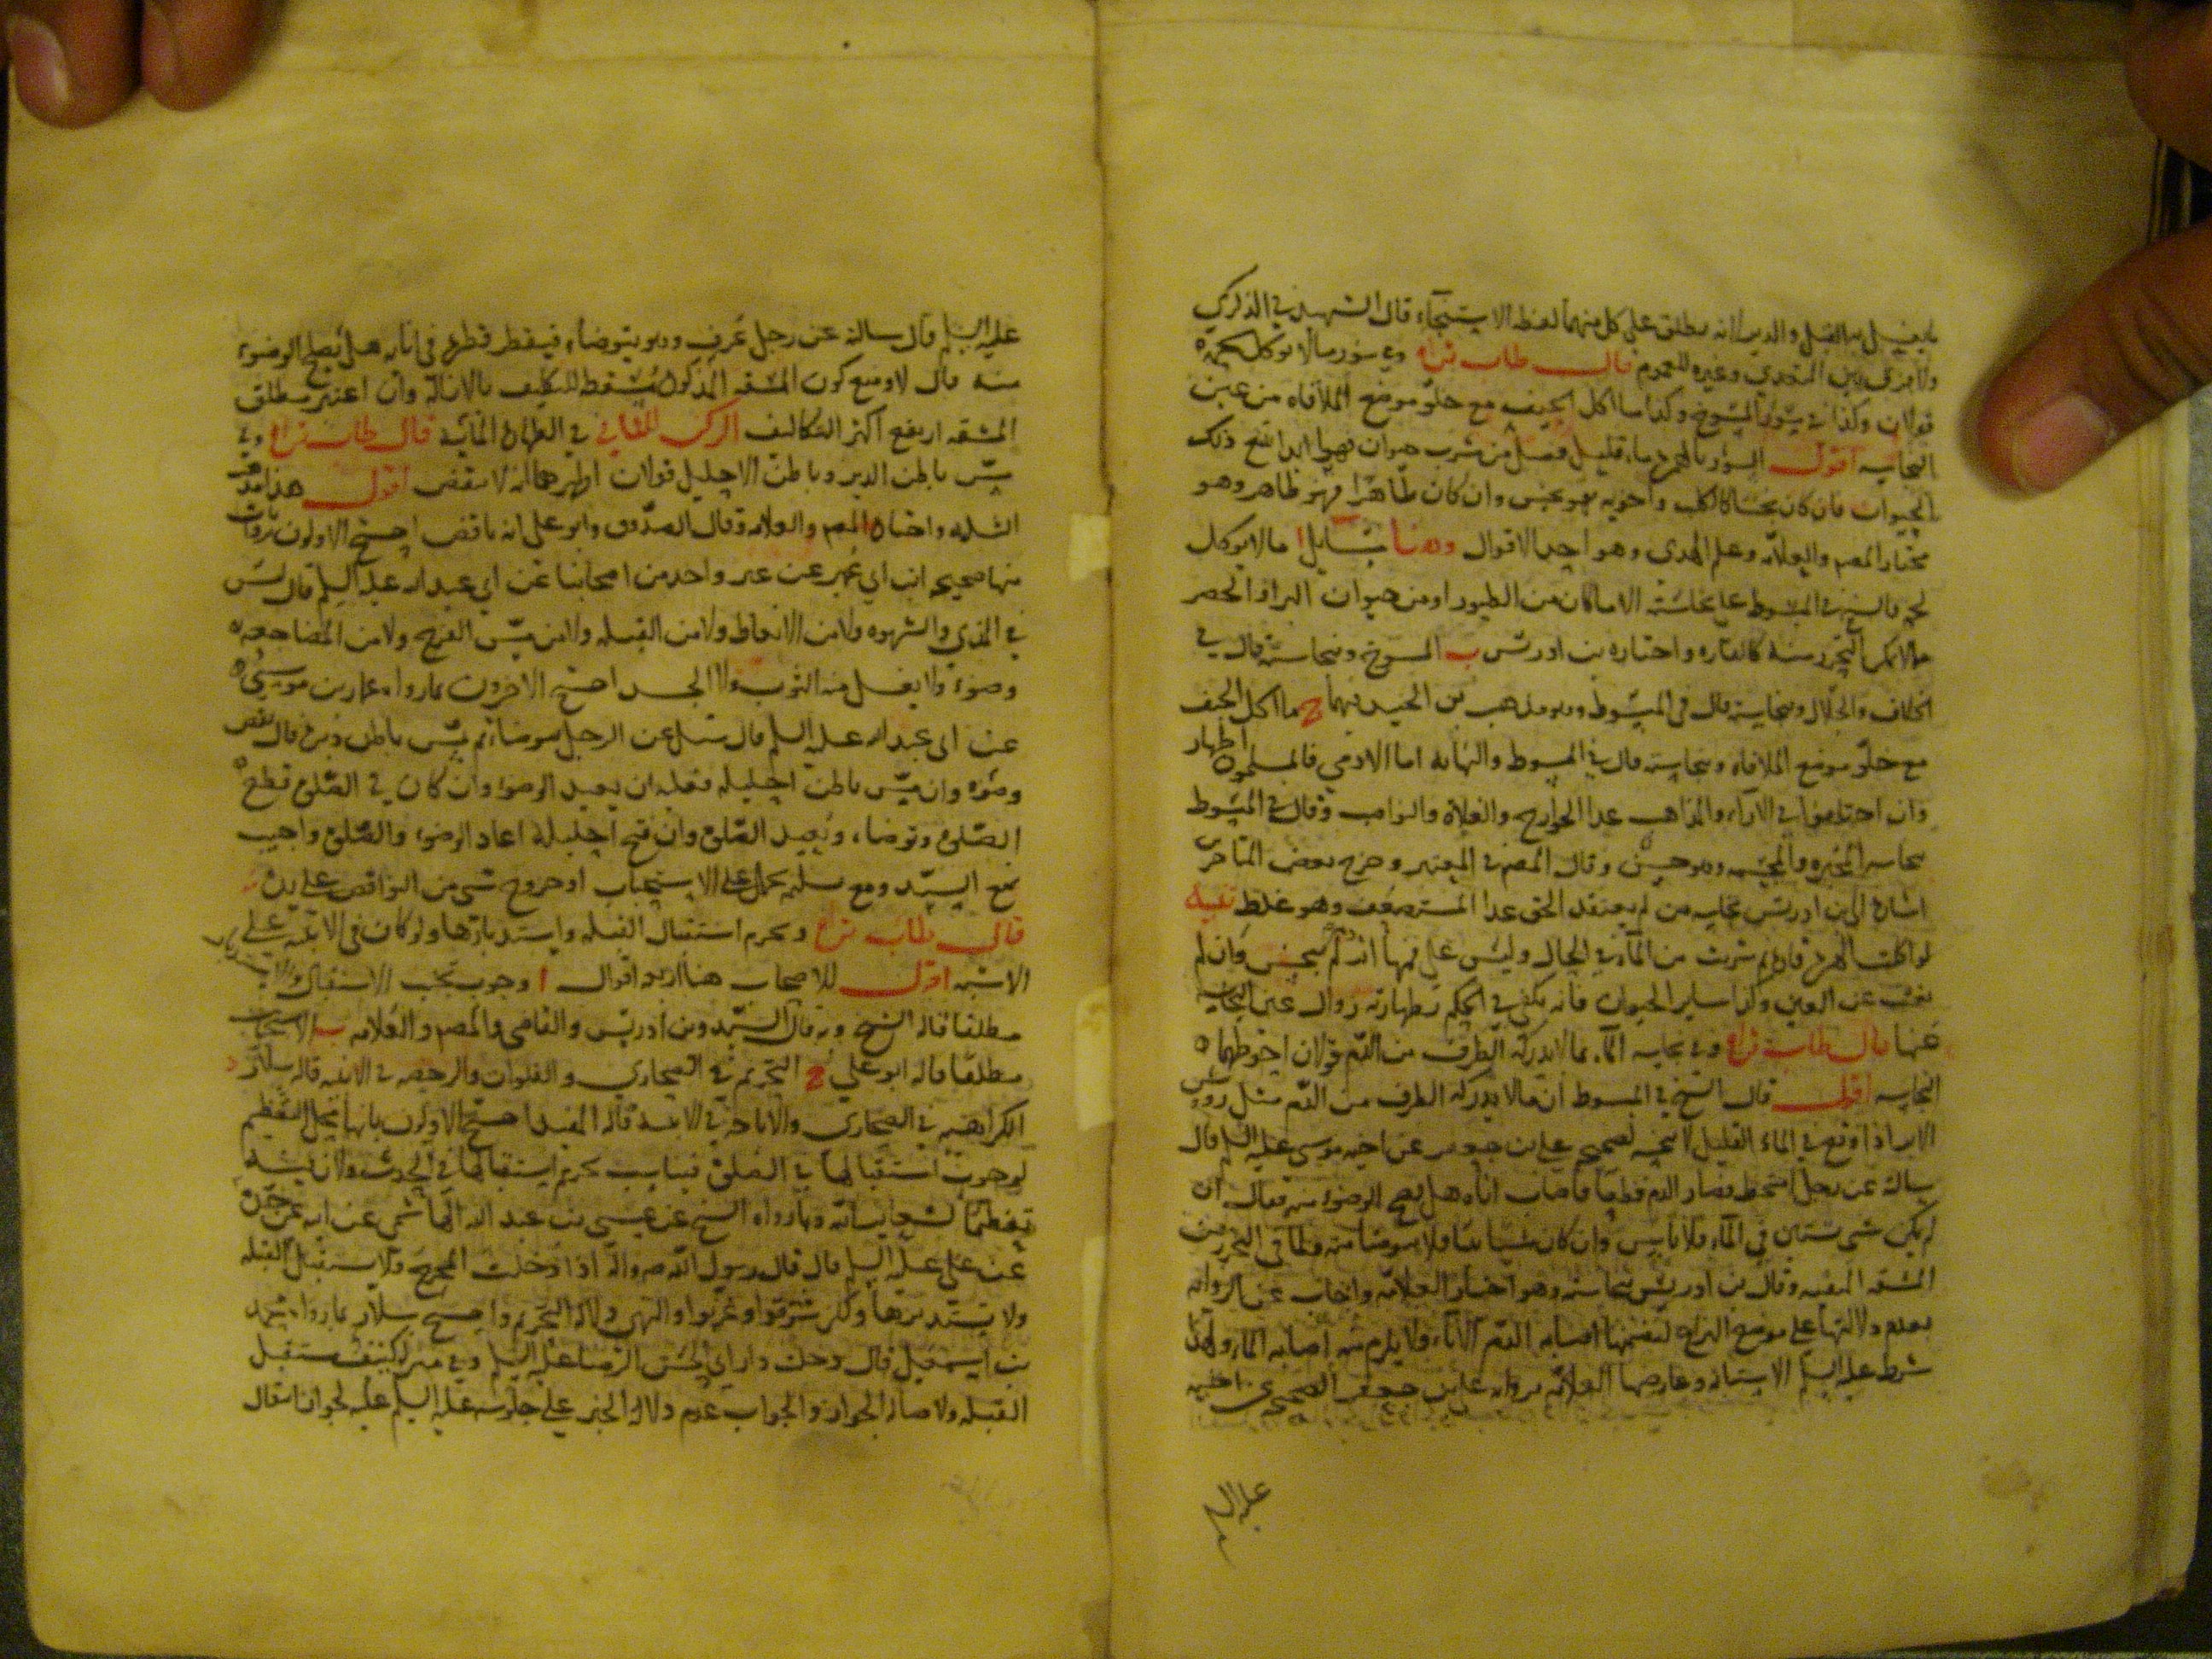 ما يغسل به القبل والدبر لانه يطلق على كل منهما لفظة الاستنجاء قال الشهيد في الذكرى
ولا فرق بين المتعدي وغيره للعموم قال طاب ثراه وفي سؤر ما لا يوكل لحمه
قولان وكذا في سؤر المسوخ وكذا ما اكل الجيف مع خلو موضع الملاقاه من عين
النجاسه اقول السؤر بالهمزه ماء قليل فضل من شرب حيوان فهو ابدا تابع ذلك
الحيوان فان كان نجسا كالكلب واخويه فهو نجس وان كان طاهرا فهو طاهر وهو
مختار المصم والعلامه وعلم الهدى وهو احد الاقوال وهنا مسايل ا ما لا يوكل
لحمه قال الشيخ في المبسوط على نجاسته الا ما كان من الطيور او من حيوان البر او الحضر
مالا يمكن التحرز منه كالفاره واختاره بن ادريس ب المسوخ ونجاسته قال في
الخلاف والجلال ونجاسته قال في المبسوط وهو مذهب بن الجنيد فيهما ج ما اكل الجيف
مع خلو موضع الملاقاه ونجاسته قال في المبسوط والنهايه اما الادمي فالمسلمون اطهار
وان اختلفوا في الاراء والمذاهب عدا الخوارج والغلاة والنواصب وقال في المبسوط
نجاسه المجبره والمجسمه وهو حسن وقال المصم في المعتبر وخرج بعض المتاخرين
اشاره الى بن ادريس نجاسه من لم يعتقد الحق عدا المستضعف وهو غلط تنبيه
لو اكلت الهره فاره ثم شربت من الماء في الحال وليس على فمها اثر دم لم ينجس وان لم
تغب عن العين وكذا ساير الحيوان فانه يكفي في الحكم بطهارته زوال عين النجاسه
عنها قال طاب ثراه وفي نجاسه الماء بما لا يدركه الطرف من الدم قولان احوطهما
النجاسه اقول قال الشيخ في المبسوط ان ما لا يدركه الطرف من الدم مثل رؤوس
الابر اذا وقع في الماء القليل لا ينجسه لصحيح علي بن جعفر عن اخيه موسى عليه السلم قال
سالته عن رجل امتخط فصار الدم قطعا فاصاب اناه هل يصح الوضوء منه فقال ان
لم يكن شي يستبين في الماء فلا باس وان كان شيا بينا فلا يتوضا منه ولما في التحرز من
المشقه المنفيه وقال بن ادريس بنجاسته وهو اختيار العلامه واجاب عن الروايه
بعدم دلالتها على موضع النزاع لتضمنها اصابه الدم الاناء ولا يلزم منه اصابه الماء ولهذا
شرط عليه السلم الاستبانه وعارضها العلامه بروايه علي بن جعفر الصحيحه عن اخيه
عليه السلم
عليه السلم قال سالته عن رجل رعف وهو يتوضاء فيقطر قطره في انائه هل يصلح الوضوء
منه قال لا ومنع كون المشقه المذكوره مسقطه للتكليف بالازاله وان اعتبر مطلق
المشقه ارتفع اكثر التكاليف الركن الثاني في الطهاره المائيه قال طاب ثراه وفي
مس باطن الدبر وباطن الاحليل قولان اظهرهما انه لا ينقض اقول هذا مذهب
الثلثه واختاره المصم والعلامه وقال الصدوق وابو علي انه ناقض احتج الاولون بروايات
منها صحيحه ابن ابي عمير عن غير واحد من اصحابنا عن ابي عبد الله عليه السلم قال ليس
في المذي والشهوه ولا من الانعاظ ولا من القبله ولا من مس الفرج ولا من المضاجعه
وضوء ولا يغسل منه الثوب ولا الجسد احتج الاخرون بما رواه عمار بن موسى
عن ابى عبد الله عليه السلم قال سئل عن الرجل يتوضاء ثم يمس باطن دبره قال نقض
وضوءه وان مس باطن احليله فعليه ان يعيد الوضوء وان كان في الصلوة قطع
الصلوة وتوضاء ويعيد الصلوة وان فتح احليله اعاد الوضوء والصلوة واجيب
بمنع السند ومع سلمه يحمل على الاستحباب او خروج شي من النواقض على يده
قال طاب ثراه ويحرم استقبال القبله واستدبارها ولو كان فى الابنيه على
الاشبه اقول للاصحاب هنا اربعه اقوال ا وجوب تجنب الاستقبال والاستدبار
مطلقا قاله الشيخ وبه قال السيد وبن ادريس والقاضي والمصم والعلامه ب الاستحباب
مطلقا قاله ابو علي ج التحريم في الصحاري والفلوات والرخصه في الابنيه قاله سلار د
الكراهيه في الصحارى والاباحه في الابنيه قاله المفيد احتج الاولون بانها محل التعظيم
لوجوب استقبالها في الصلوة فيناسب تحريم استقبالها في الحدث ولان فيه
تعظيما لشعاير الله وبما رواه الشيخ عن عيسى بن عبد الله الهاشمى عن ابيه عن جده
عن علي عليه السلم قال قال رسول الله صم واله اذا دخلت المخرج فلا تستقبل القبله
ولا تستدبرها ولكن شرقوا او غربوا والنهي دلاله التحريم واحتج سلار بما رواه محمد
بن اسمعيل قال دخلت دار ابي الحسن الرضا عليه السلم وفي منزله كنيف مستقبل
القبله ولاصاله الجواز والجواب عدم دلاله الخبر على جلوسه عليه السلم عليه لجواز انتقال